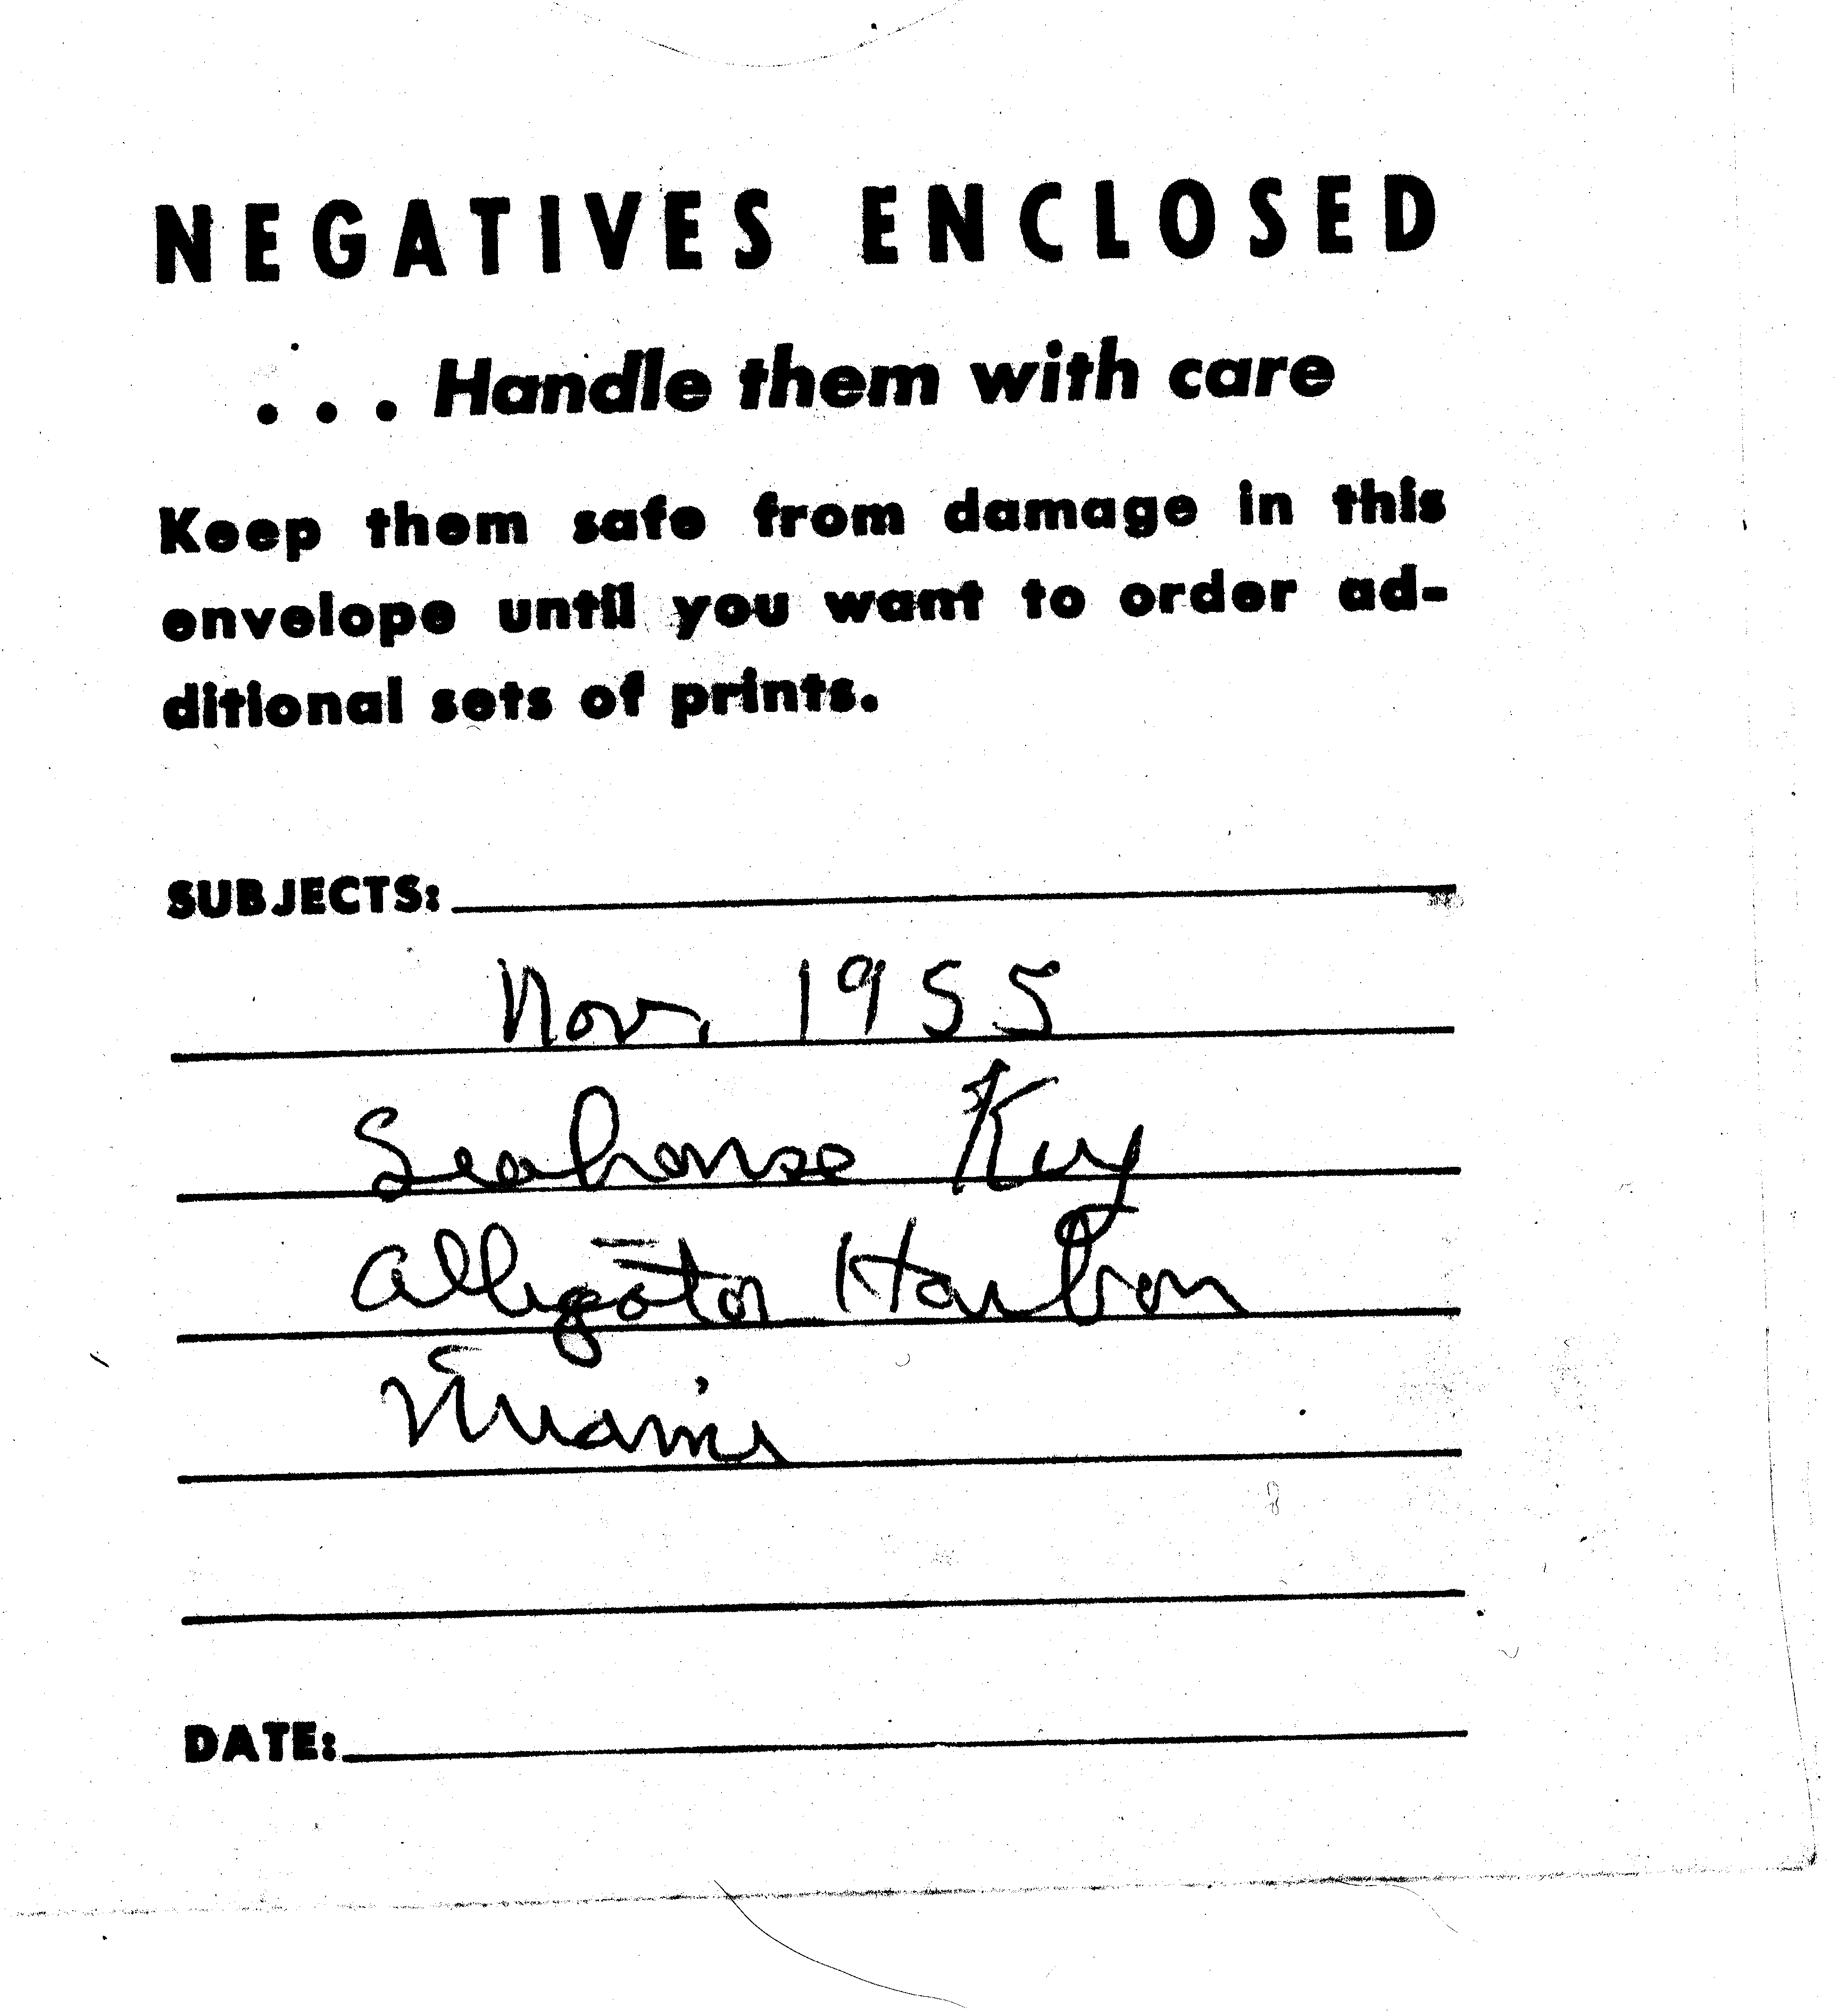 NEGATIVES ENCLOSED
. . . Handle them with care
Keep them safe from damage in this
envelope until you want to order ad-
ditional sets of prints.
SUBJECTS:
Nov. 1955
Seahorse Key
Alligator Harbor
Miami
DATE: